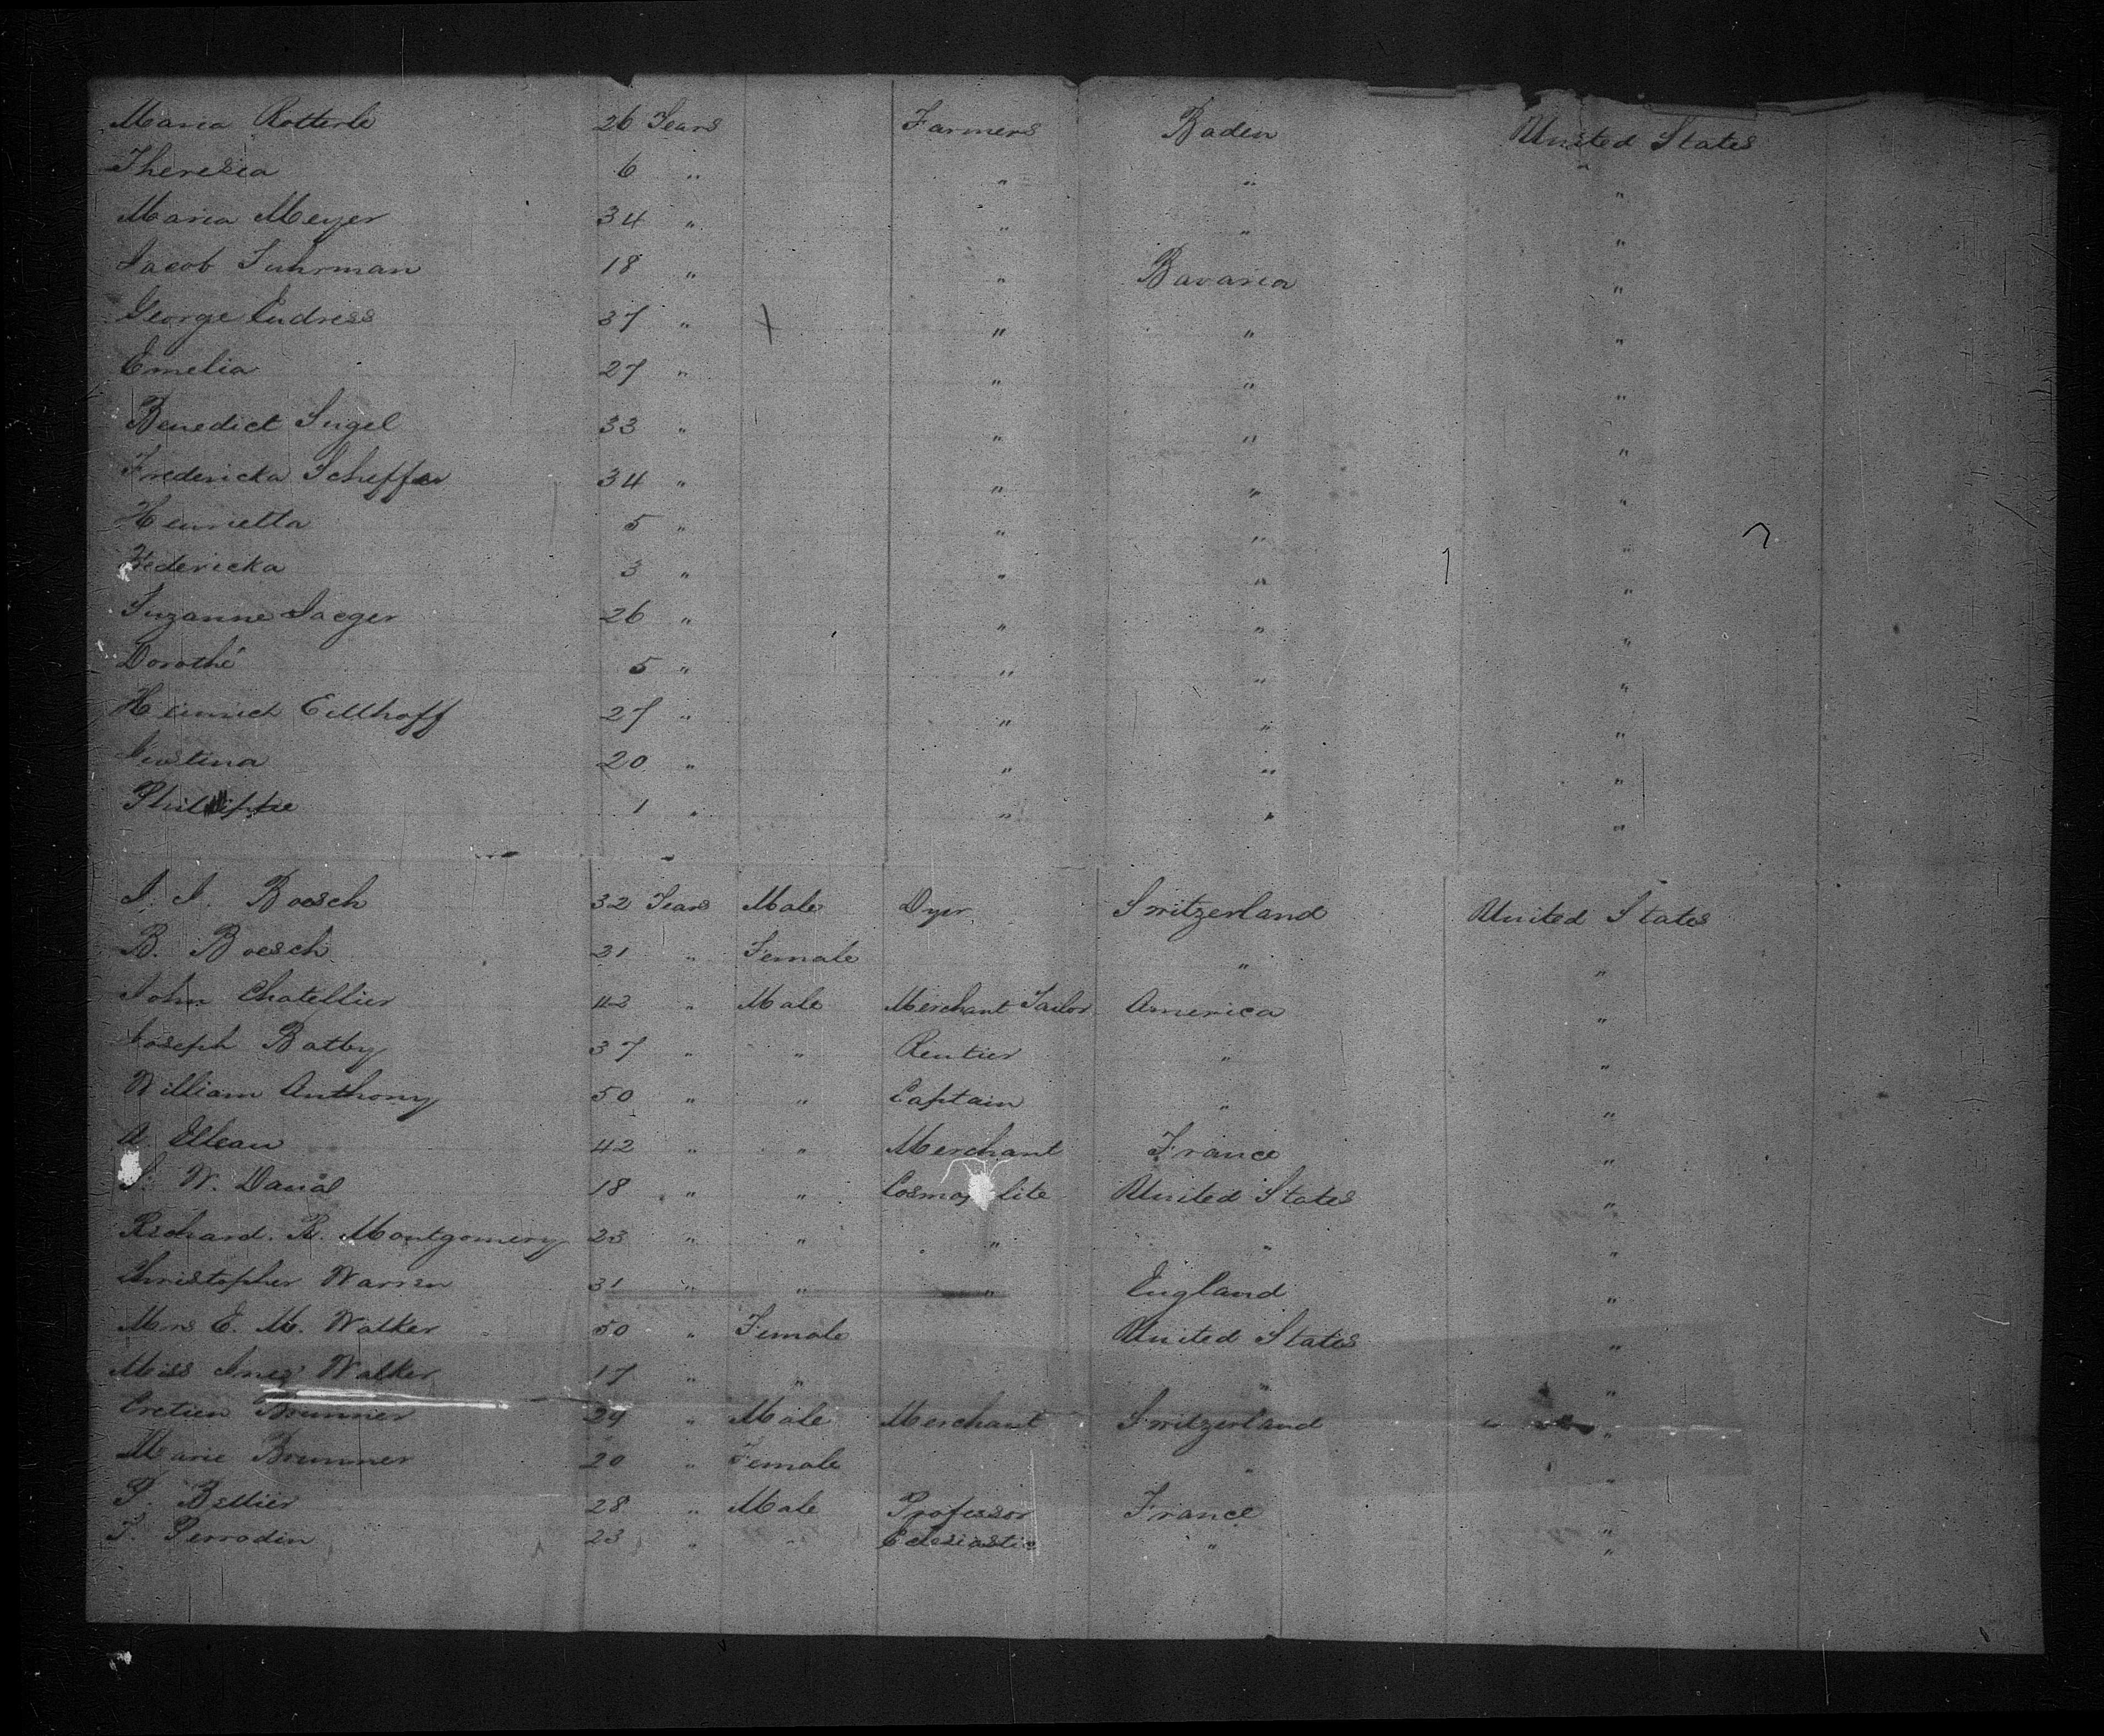 Maria Rotterle 26 Years Farmers Baden United States
Theresia 6 " " " "
Maria Meyer 34 " " " "
Jacob Fuhrman 18 " " Bavaria "
George Endress 37 " " " "
Emelia 27 " " " "
Benedict Sugel 33 " " " "
Fredericka Scheffer 34 " " " "
Henrietta 5 " " " "
Fredericka 3 " " " "
Suzanne Jaeger 26 " " " "
Dorothé 5 " " " "
Heinrich Eillhoff 27 " " " "
Justina 20 " " " "
Philippe 1 " " " "
J. J. Boesch 32 Years Male Dyer Switzerland United States
B. Boesch 31 " Female " "
John Chatellier 42 " Male Merchant Tailor America "
Joseph Batby 37 " " Rentier " "
William Anthony 50 " " Captain " "
A. 42 " " Merchant France "
W. Danal 18 " " Cosmopolite United States "
Richard. R. Montgomery 23 " " " " "
Christopher Warren 31 " " " England "
Mrs E. M. Walker 50 " Female United States "
Miss Inez Walker 17 " " " "
Cretien Brunner 29 " Male Merchant Switzerland "
Marie Brunner 20 " Female " "
P. Bellier 28 " Male Professor France "
T. Perrodin 23 " " Eclesiastic " "